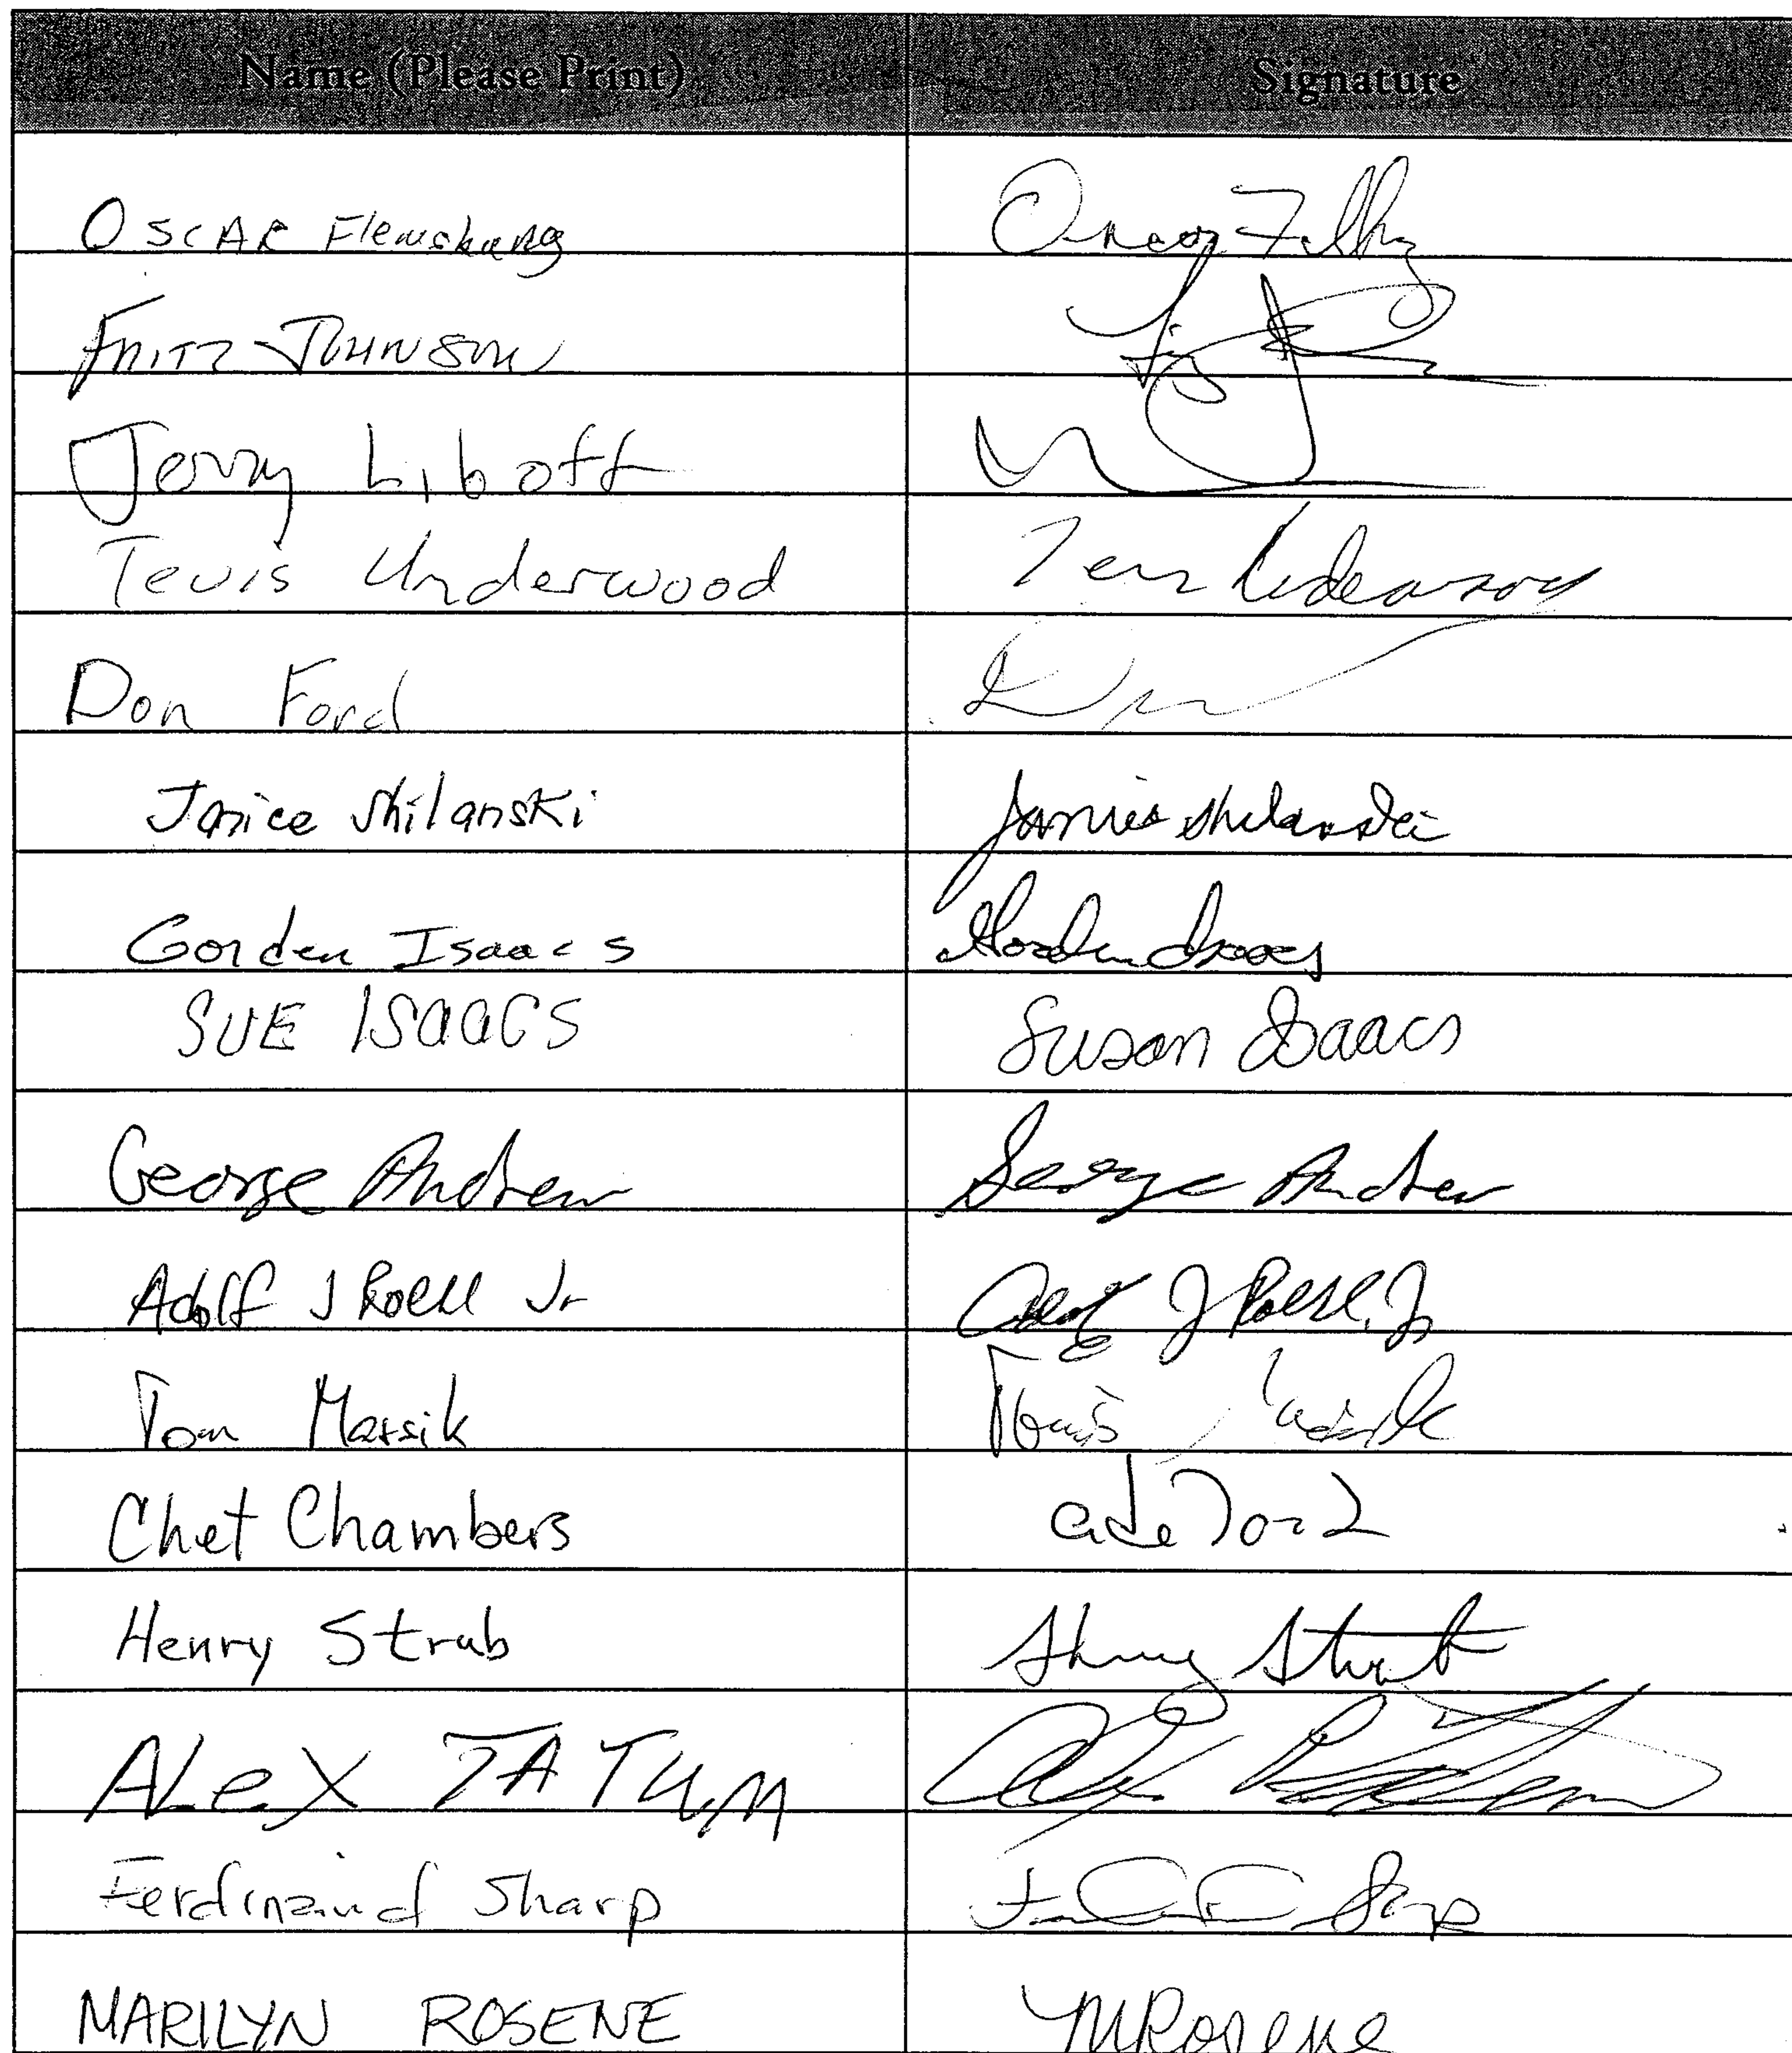 Name (Please Print) Signature
OSCAR
FRITZ JOHNSON
Jerry Liboff
Tevis Underwood
Don Ford
Janice Shilanski Janice Shilanski
Gorden Isaacs Gorden Isaacs
SUE ISAACS Susan Isaacs
George Andrew George Andrew
Adolf J Roehl Jr J Roehl Jr
Tom Marsik
Chet Chambers
Henry Strub Henry Strub
ALEX TATUM
Ferdinand Sharp Sharp
MARILYN ROSENE MRosene